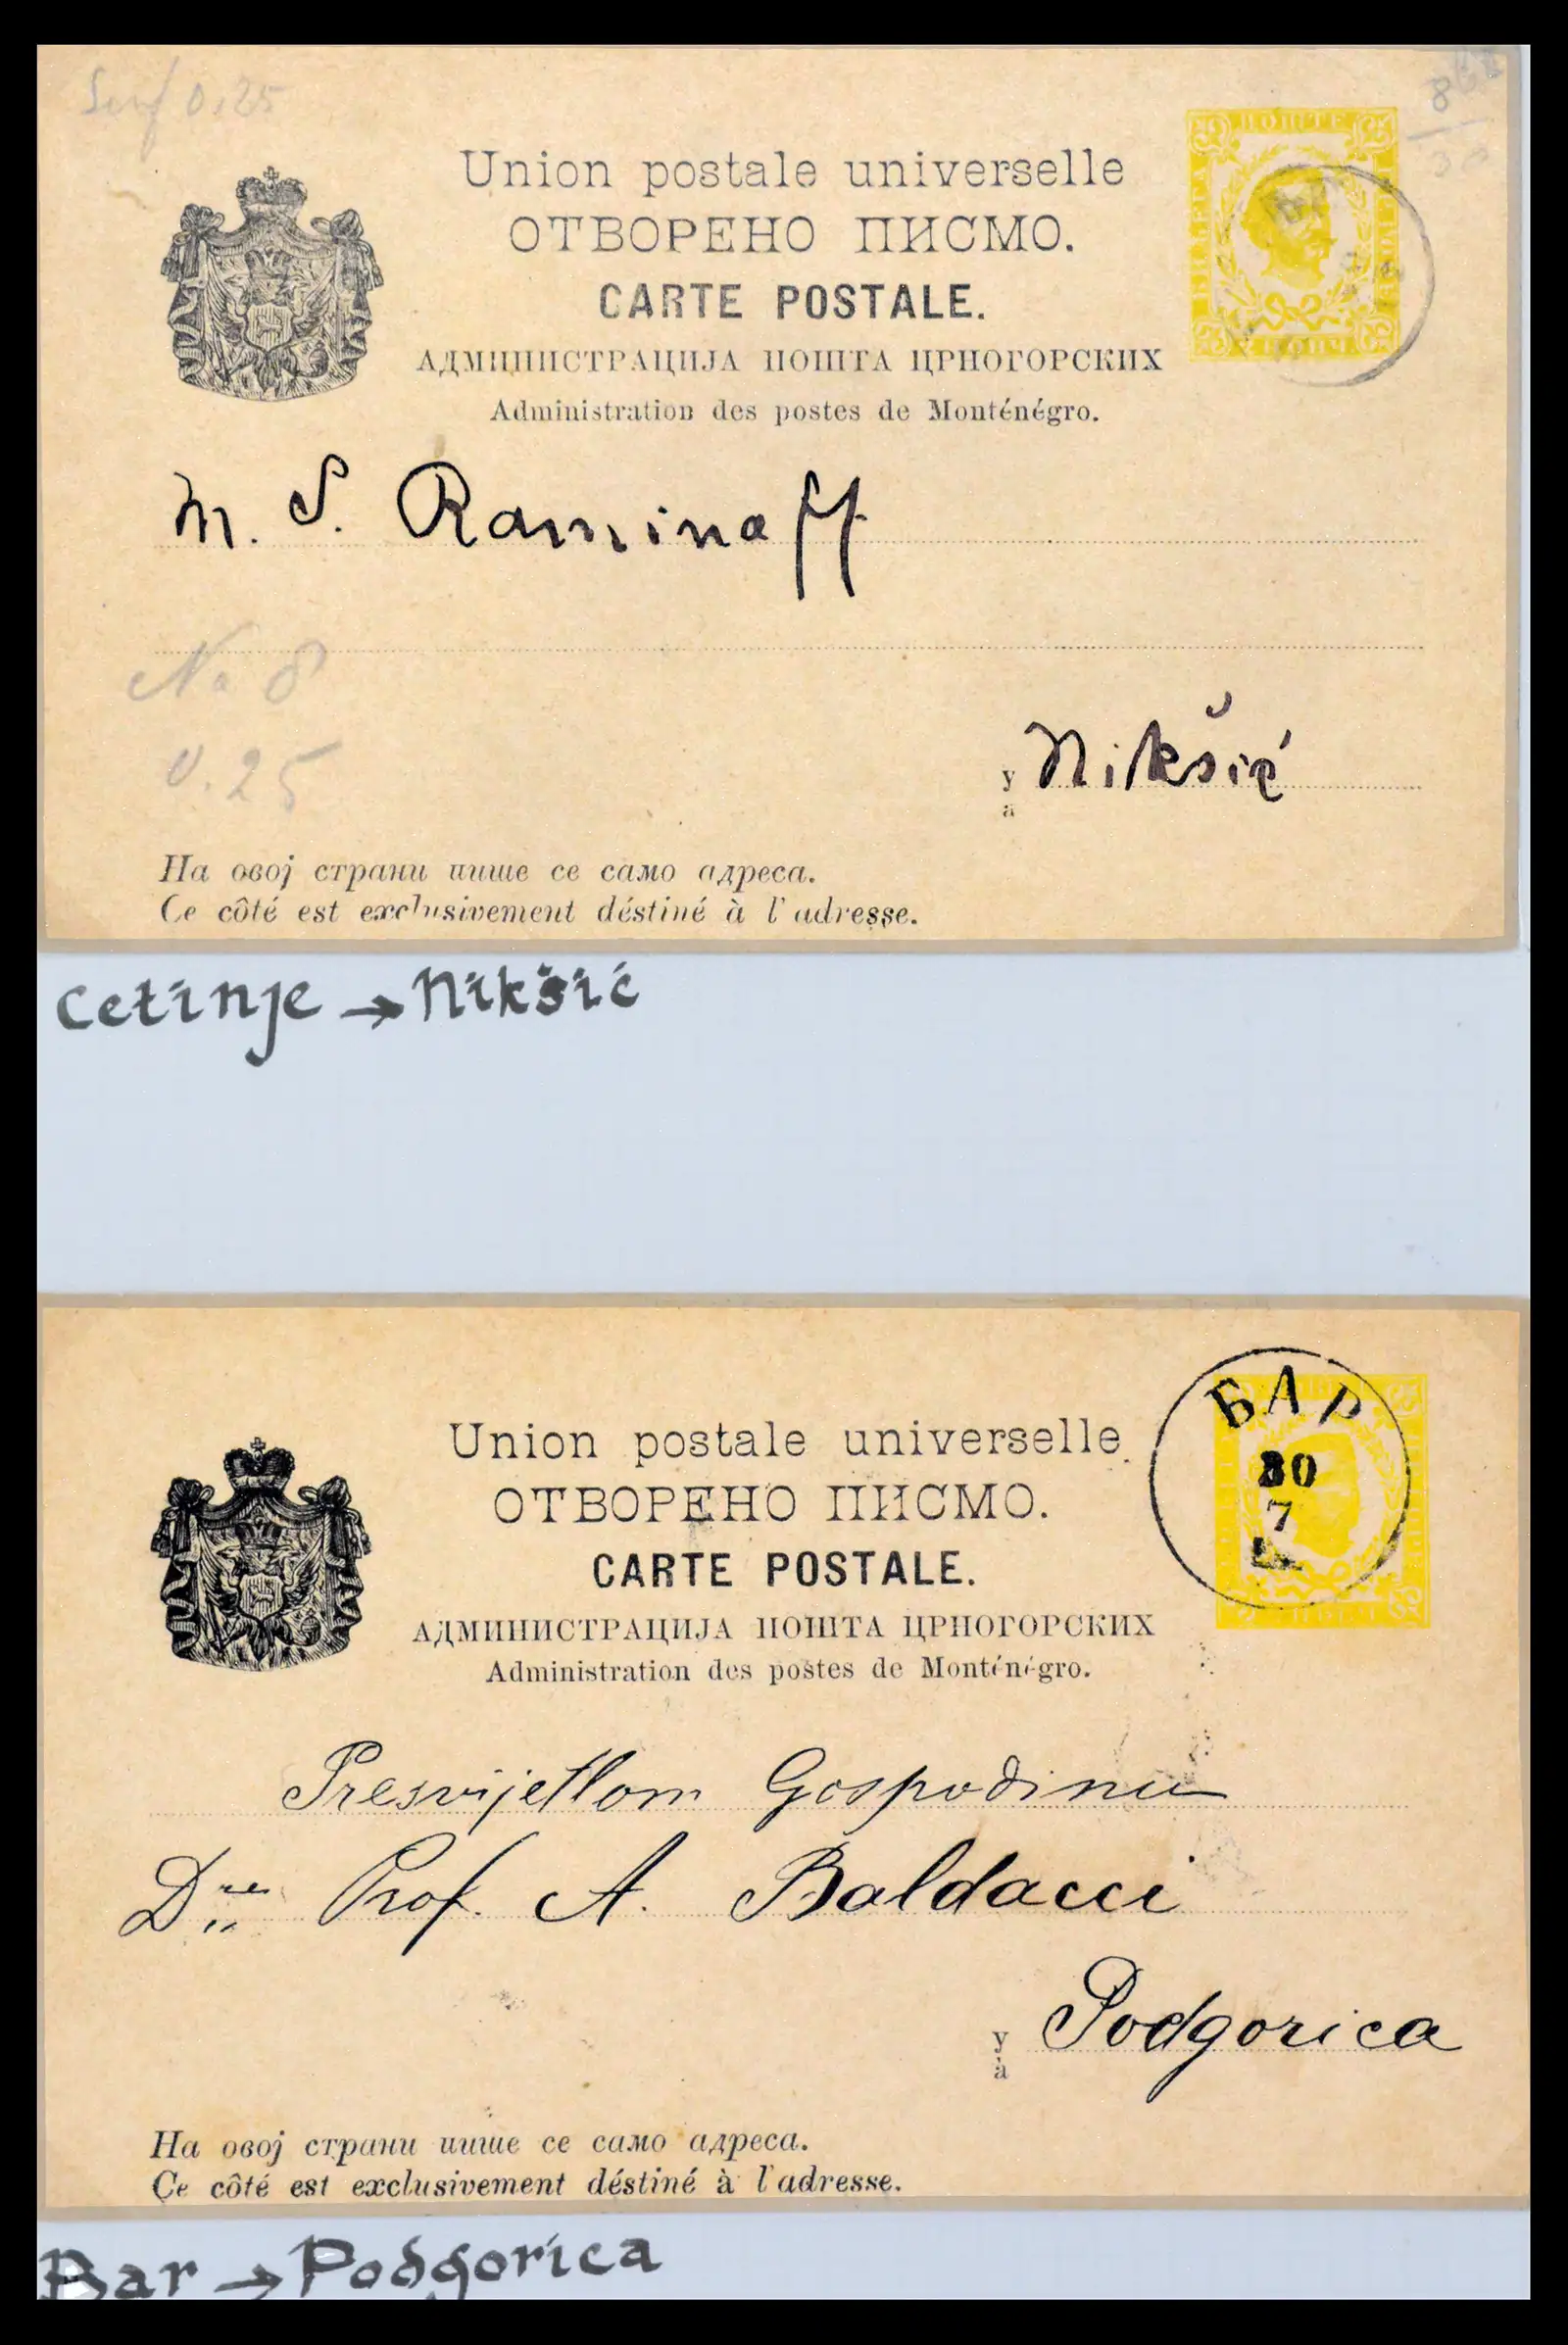 Senf 0.25
Union postale universelle
ОТВОРЕНО ПИСМО.
CARTE POSTALE.
АДМИНИСТРАЦИЈА ПОШТА ЦРНОГОРСКИХ
Administration des postes de Monténégro.
ПОШТЕ
M. S. Raminaff
No 8
0.25
у Nikšić
à
На овој страни пише се само адреса.
Ce côté est exclusivement déstiné à l'adresse.
Cetinje → Nikšić
Union postale universelle
ОТВОРЕНО ПИСМО.
CARTE POSTALE.
АДМИНИСТРАЦИЈА ПОШТА ЦРНОГОРСКИХ
Administration des postes de Monténégro.
БАР
30
7
Presvijetlom Gospodinu
Dru Prof. A. Baldacci
у Podgorica
à
На овој страни пише се само адреса.
Ce côté est exclusivement déstiné à l'adresse.
Bar → Podgorica